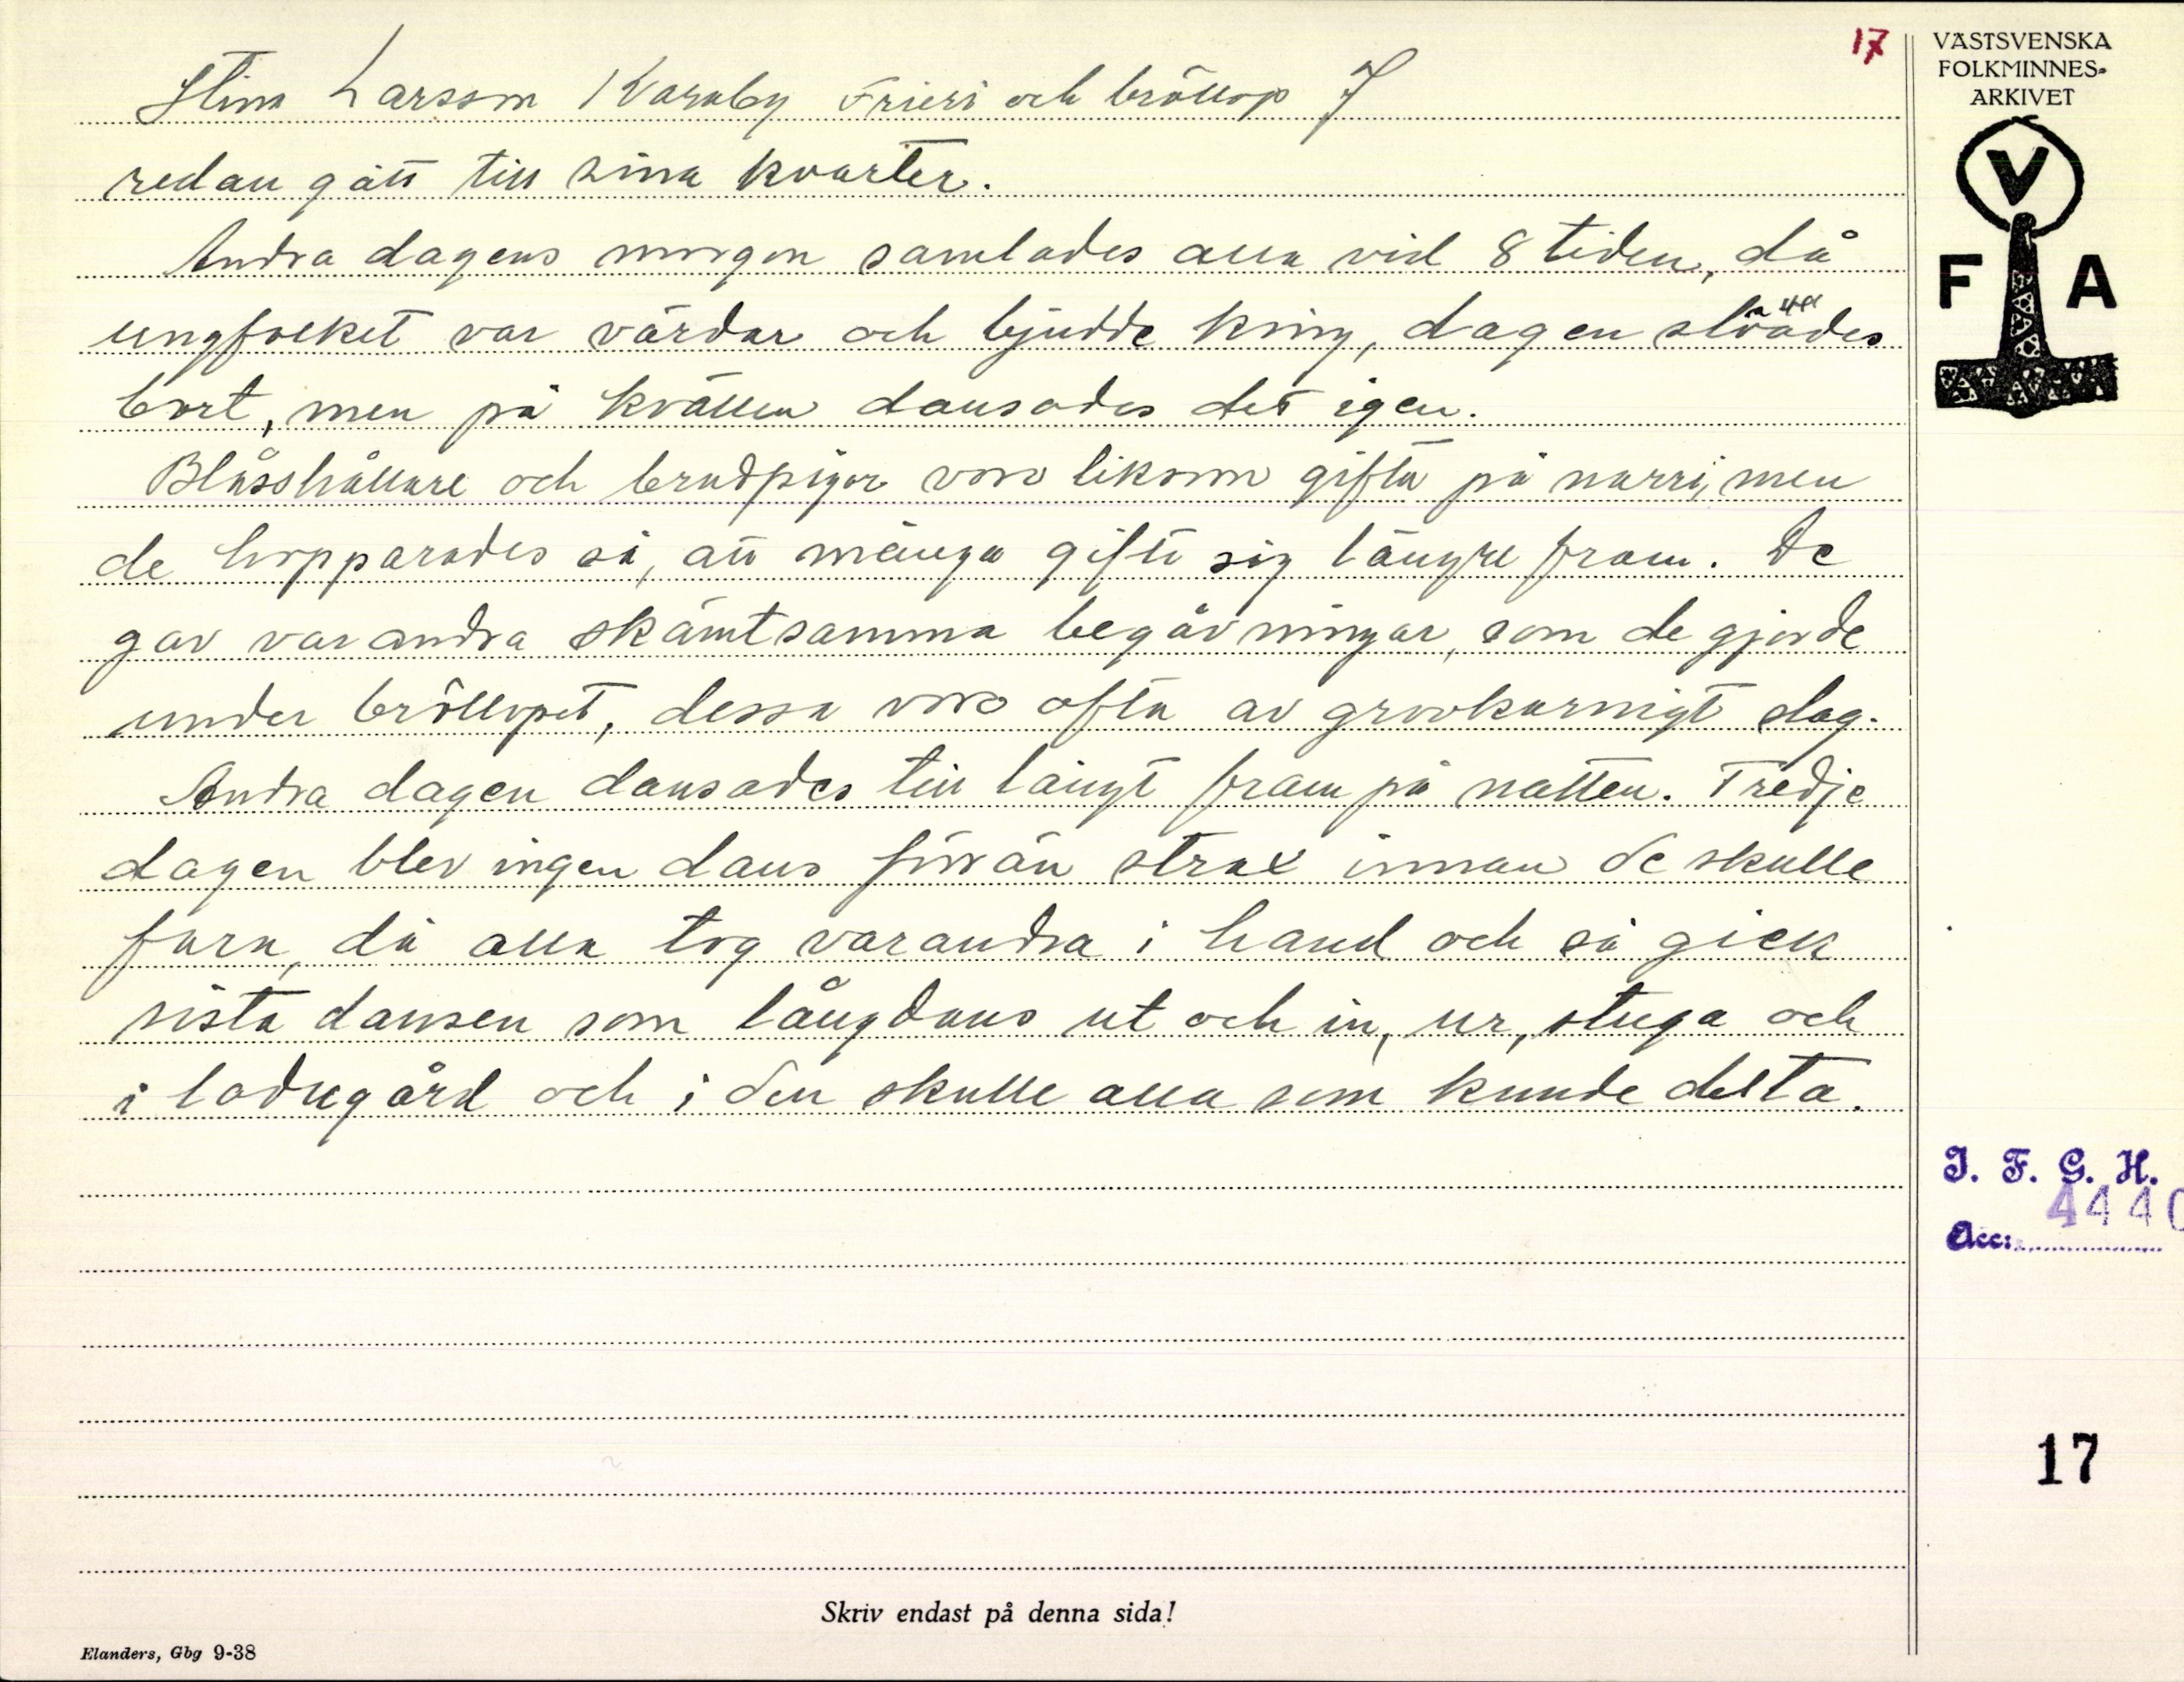 17
VÄSTSVENSKA
FOLKMINNES-
ARKIVET
V
F A
Stina Larsson Karaby Frieri och bröllop 7
redan gått till sina kvarter.
Andra dagens morgon samlades alla vid 8 tiden, då
ungfolket var värdar och bjudde kring, dagen slöades
bort, men på kvällen dansades det igen.
Blåsshållare och brudpigor voro liksom gifta på narri, men
de hopparades så, att många gifte sig längre fram. De
gav varandra skämtsamma begåvningar, som de gjorde
under bröllopet, dessa voro ofta av grovkornigt slag.
Andra dagen dansades till långt fram på natten. Tredje
dagen blev ingen dans förrän strax innan de skulle
fara, då alla tog varandra i hand och så gick
sista dansen som långdans ut och in, ur, stuga och
i ladugård och i den skulle alla som kunde delta.
I. F. G. H.
4440
Acc:
17
Skriv endast på denna sida!
Elanders, Gbg 9-38